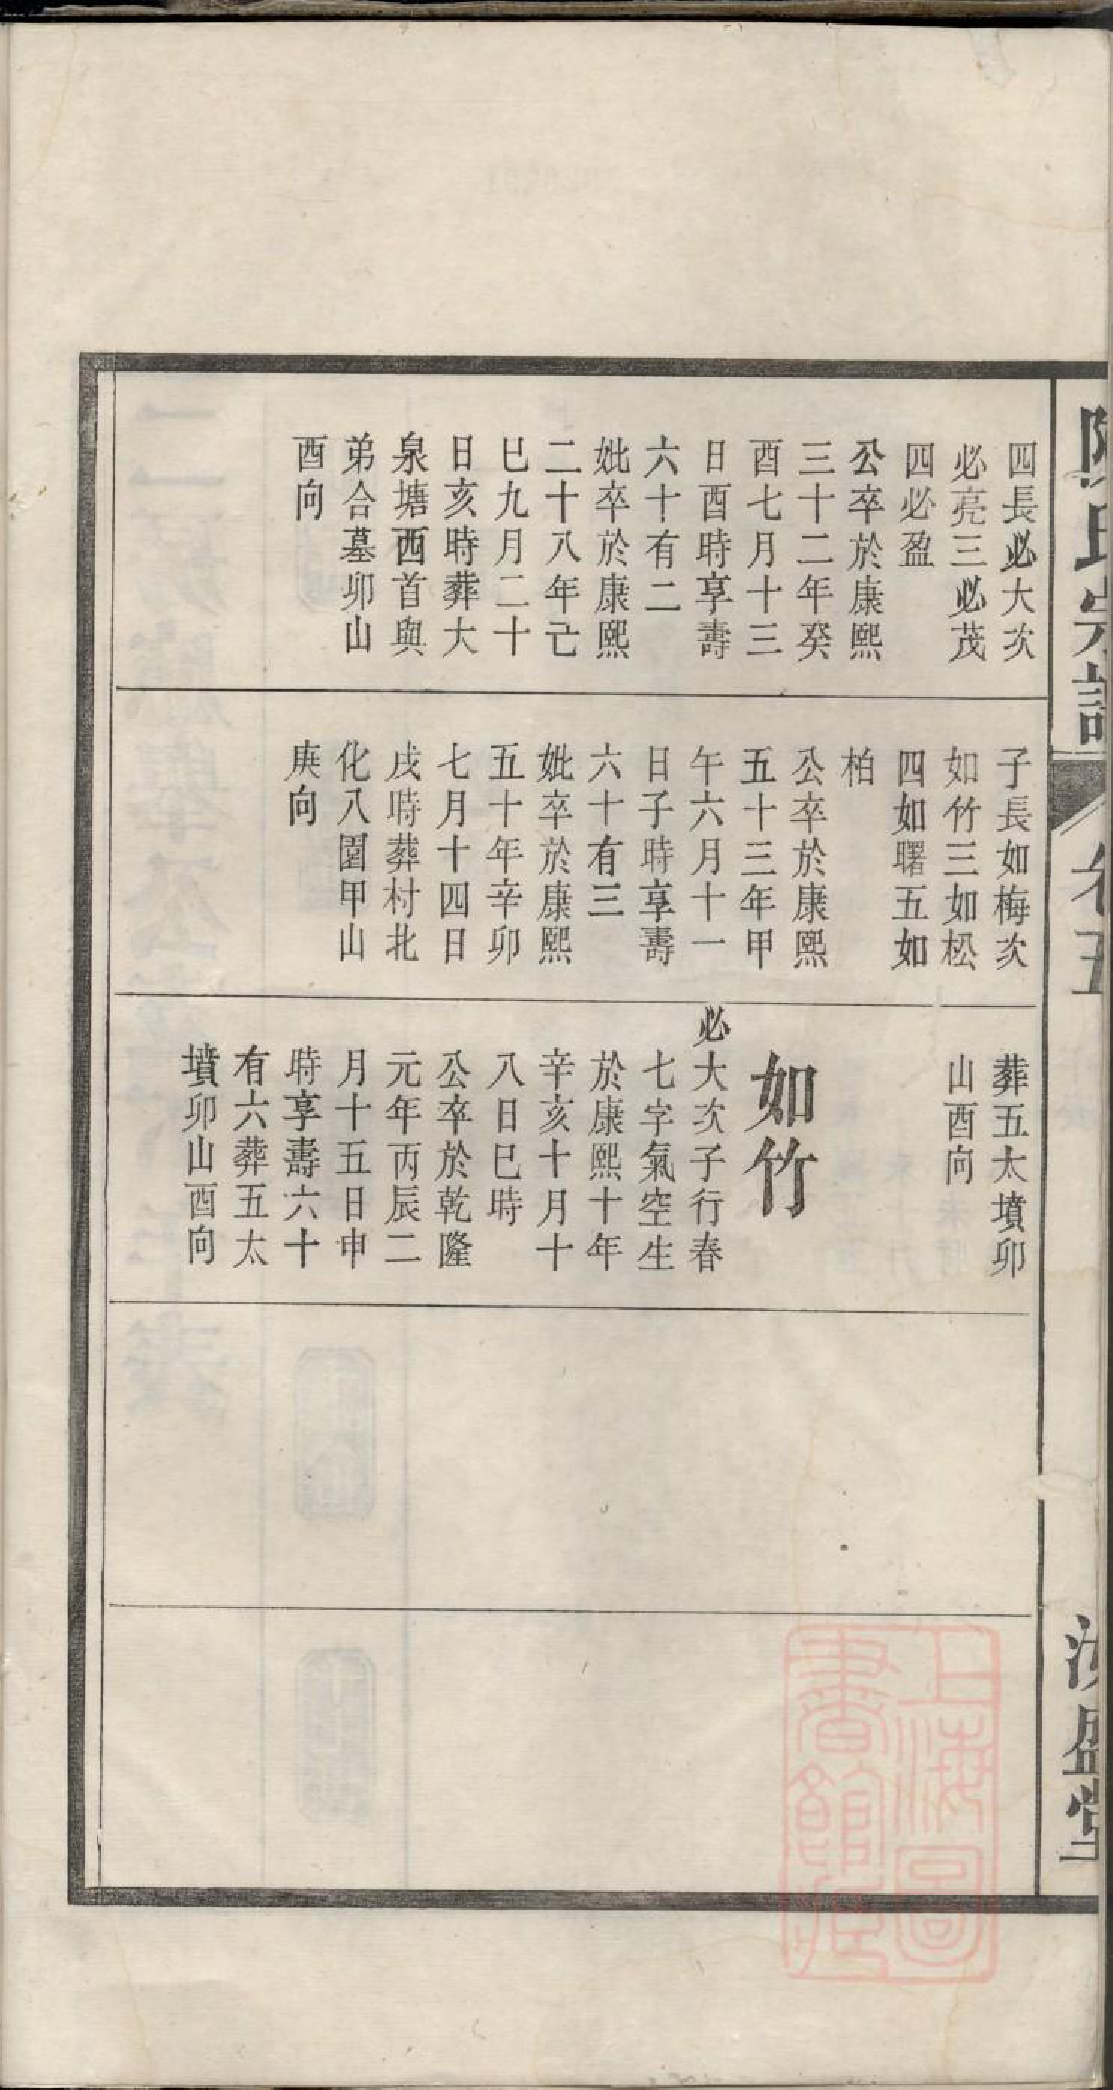 四長必大次
必亮三必茂
四必盈
公卒於康熙
三十二年癸
酉七月十三
日酉時享壽
六十有二
妣卒於康熙
二十八年亡
巳九月二十
日亥時葬大
泉塘西首與
弟合墓卯山
酉向
子長如梅次
如竹三如松
四如曙五如
柏
公卒於康熙
五十三年甲
午六月十一
日子時享壽
六十有三
妣卒於康熙
五十年辛卯
七月十四日
戌時葬村北
化八園甲山
庚向
葬五太墳卯
山酉向
如竹
必大次子行春
七字氣空生
於康熙十年
辛亥十月十
八日巳時
公卒於乾隆
元年丙辰二
月十五日申
時享壽六十
有六葬五太
墳卯山酉向
陳氏宗譜
卷五
盛堂
上海圖
書館藏